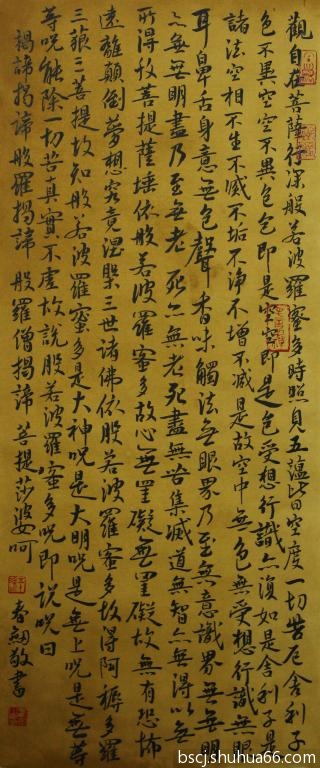 觀自在菩薩行深般若波羅蜜多時照見五蘊皆空度一切苦厄舍利子
色不異空空不異色色即是空空即是色受想行識亦復如是舍利子是
諸法空相不生不滅不垢不淨不增不減是故空中無色無受想行識無眼
耳鼻舌身意無色聲香味觸法無眼界乃至無意識界無無明
亦無無明盡乃至無老死亦無老死盡無苦集滅道無智亦無得以無
所得故菩提薩埵依般若波羅蜜多故心無罣礙無罣礙故無有恐怖
遠離顛倒夢想究竟涅槃三世諸佛依般若波羅蜜多故得阿耨多羅
三藐三菩提故知般若波羅蜜多是大神呪是大明呪是無上呪是無等
等呪能除一切苦真實不虛故說般若波羅蜜多呪即說呪曰
揭諦揭諦 般羅揭諦 般羅僧揭諦 菩提莎婆呵
敬書
bscj.shuhua66.com